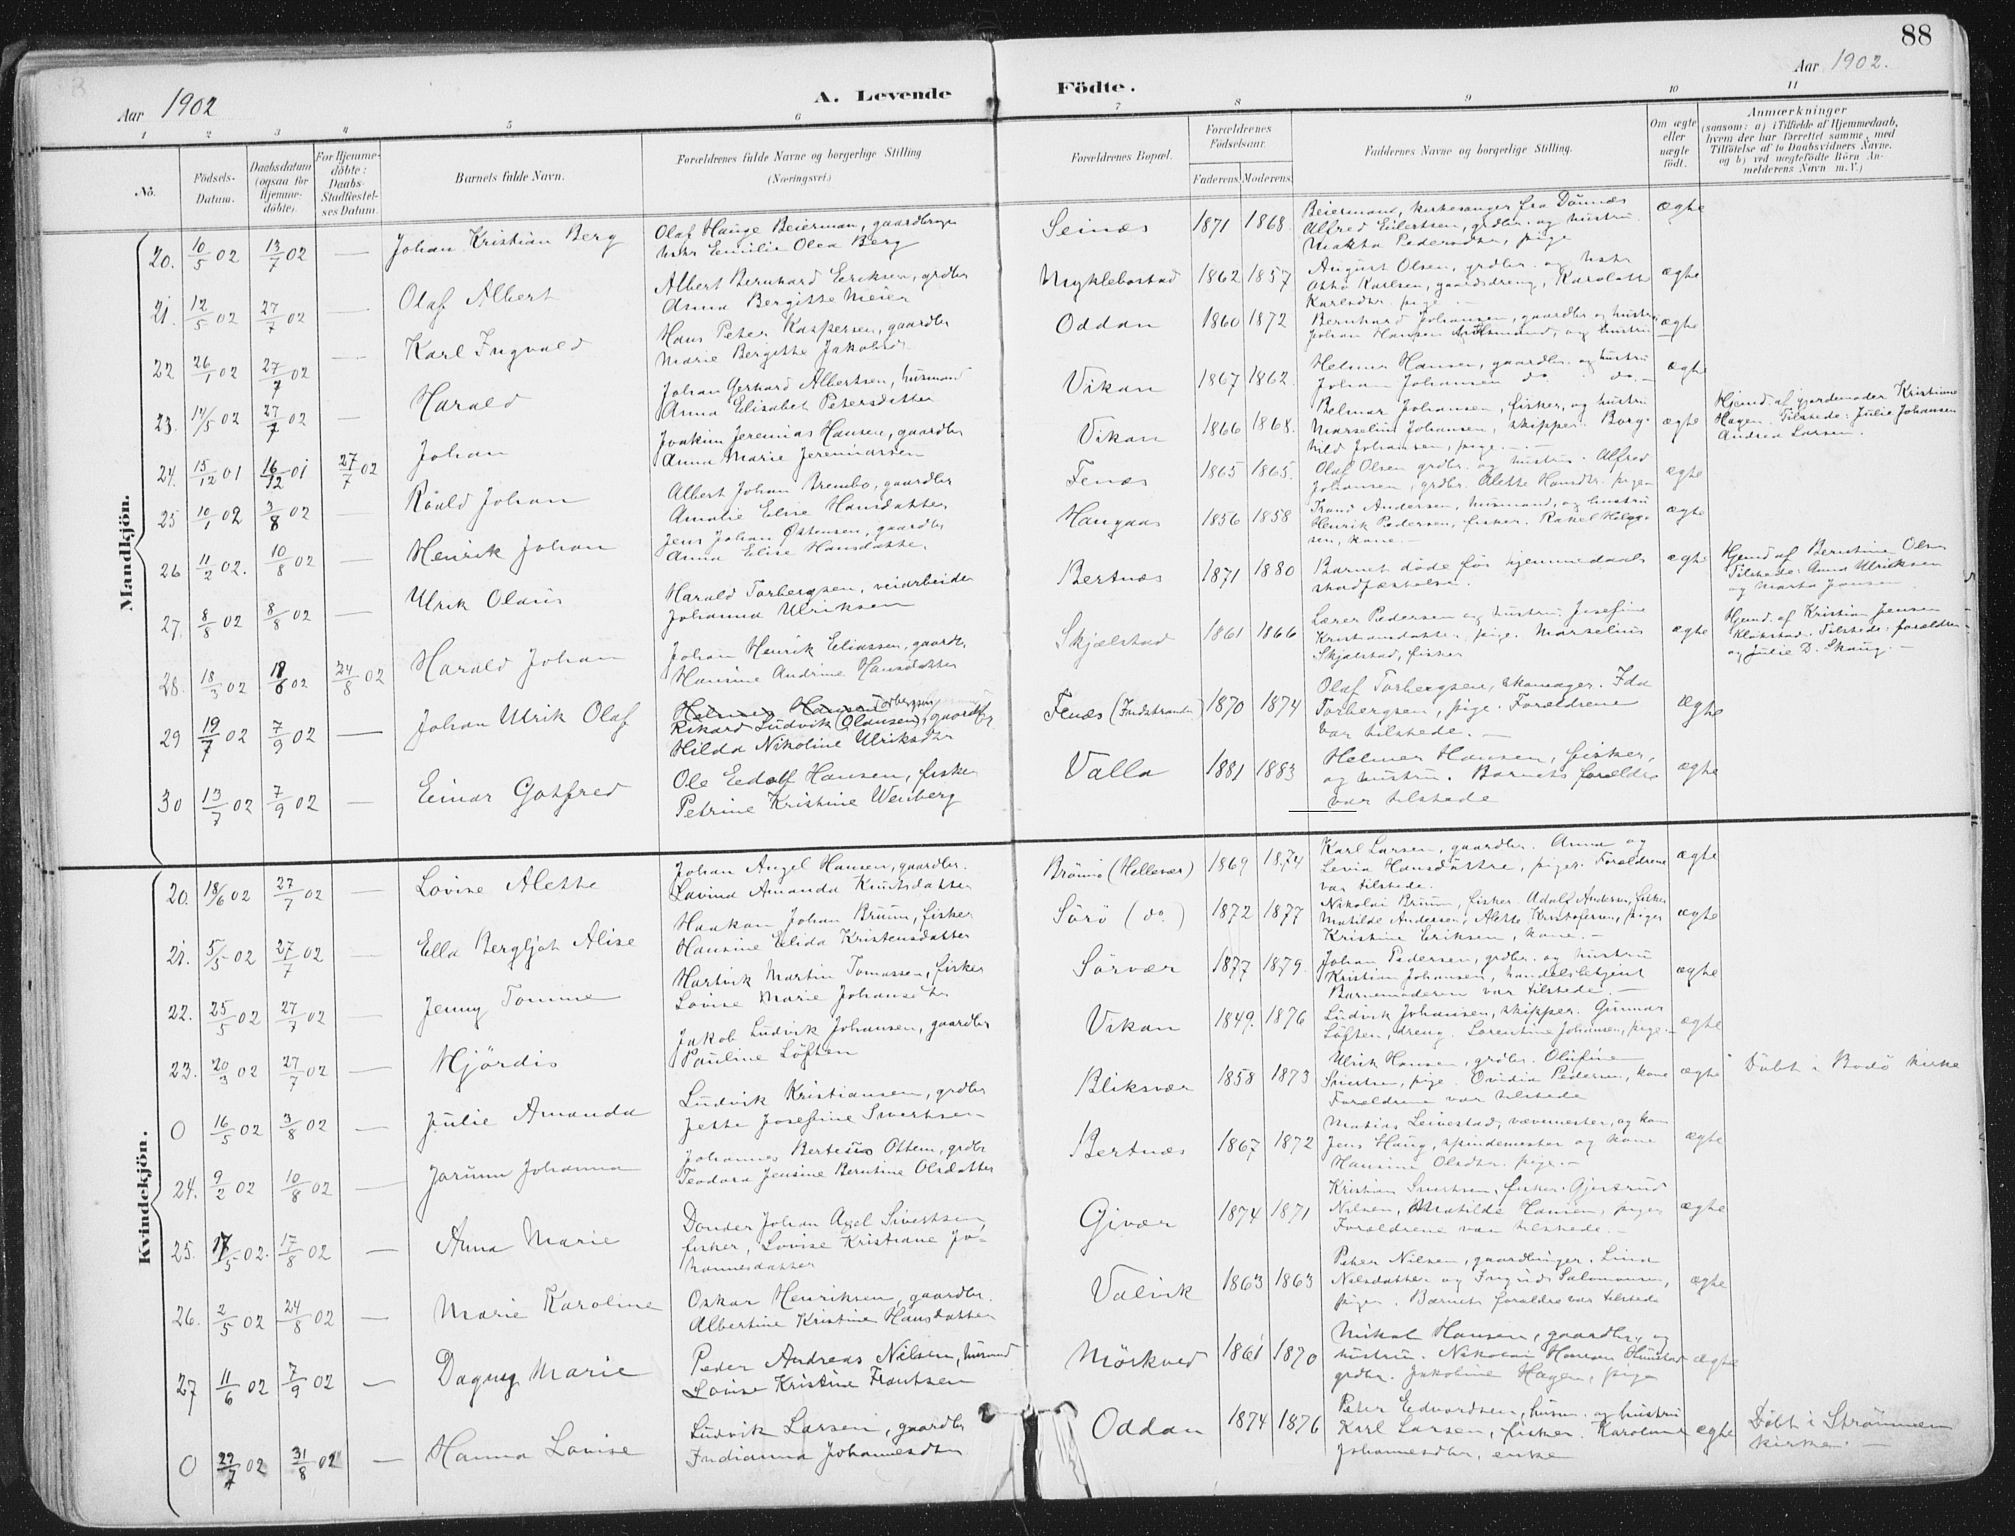 88
Aar 1902
A. Levende
Födte.
Aar 1902.
1 2 3 4 5 6 7 8 9 10 11
No.
Födsels-
Datum.
Daabsdatum
(ogsaa for
Hjemme-
döbte).
For Hjemme-
döbte:
Daabs-
Stadfæstel-
ses Datum.
Barnets fulde Navn.
Forældrenes fulde Navne og borgerlige Stilling
(Næringsvei.)
Forældrenes Bopæl.
Forældrenes
Födselsaar.
Faderens. Moderens.
Faddernes Navne og borgerlige Stilling.
Om ægte
eller
uægte
født.
Anmærkninger
(saasom: a) i Tilfælde af Hjemmedaab,
hvem der har forrettet samme, med
Tilföielse af to Daabsvidners Navne,
og b) ved uægtefödte Börn An-
melderens Navn m.V.)
Mandkjön.
20. 10/5 02 13/7 02 — Johan Kristian Berg
Olaf Hauge Beierman, gaardbruger
Emilie Olea Berg
Seinæs 1871 1868.
Beiermand, kirkesanger fra Dönnæs
Alfred Eilertsen, grdbr. og hustru.
Makta Pedersdtr, pige
ægte
21. 12/5 02 27/7 02 — Olaf Albert
Albert Bernhard Eriksen, grdbr
Anna Bergitte Meier
Myklebostad 1862 1857
August Olsen, grdbr. og
Otto Karlsen, gaardsdreng, Karolotte
Karlsdtr. pige. —
ægte
22 26/1 02 27/7 02 — Karl Ingvald
Hans Peter Kaspersen, gaardbr
Marie Bergitte Jakobsd.
Oddan 1860 1872
Bernhard Johansen, gaardbr og hustru
Johan Hansen og hustru
ægte
23. 17/5 02 27/7 02 — Harald
Johan Gerhard Albertsen, husmand
Anna Elisabet Petersdatter
Vikan 1867 1862.
Helmer Hansen, gaardbr. og hustru
Johan Johansen do. do. —
ægte
24. 15/12 01 16/12 01 27/7 02 Johan
Joakim Jeremias Hansen, gaardbr
Anna Marie Jeremiassen
Vikan 1866 1868.
Belmar Johansen, fisker, og hustru
Marselius Johansen, skipper. Borg-
hild Johansen, pige. —
ægte
Hjemd. af gjordemoder Kristiane
Hagen. Tilstede: Julie Johansen
Andrea Larsen.
25 10/1 02 3/8 02 — Roald Johan
Albert Johan Brembo, gaardbr
Amalie Elise Hansdatter
Fenæs 1865 1865.
Olaf Olsen grdbr. og hustru. Alfred
Johansen, grdbr. Alette Hansdtr. pige
ægte
26 11/2 02. 10/8 02 — Henrik Johan
Jens Johan Östensen, gaardbr
Anna Elise Hansdatter
Haugaas 1856 1858
Trond Andersen, husmand, og hustru
Henrik Pedersen, fisker. Rakel Helge-
sen, kone. —
ægte
27. 8/8 02 8/8 02 — Ulrik Olaus
Harald Torbergsen, veiarbeider
Johanna Ulriksen
Bertnæs 1871 1880
Barnet döde för hjemmedaabs
stadfæstelse.
ægte
Hjemd. af Berntine Olsen
Tilstede: Anna Ulriksen
og Marta Jansen
28. 18/3 02 18/6 02 24/8 02 Harald Johan
Johan Henrik Eliassen, gaardbr
Hansine Andrine Hansdatter
Skjælstad 1861 1866
Lærer Pedersen og hustru, Josefine
Kristiansdatter, pige. Marselius
Skjælstad, fisker
ægte
Hjemd. af Kristian Jensen
Kløkstad. Tilstede: forældrene
og Julie D. Skaug. —
29 19/7 02 7/9 02 — Johan Ulrik Olaf
Rikard Ludvik (Olausen) Torbergsen, gaardbr
Hilda Nikoline Ulriksdtr
Fenæs (Indstranden) 1870 1874
Olaf Torbergsen, skomager. Ida
Torbergsen, pige. Forældrene
var tilstede. —
ægte
30 13/7 02 7/9 02 — Einar Gotfred
Ole Edolf Hansen, fisker
Petrine Kristine Wenberg
Valla 1881 1883
Helmer Hansen, fisker,
og hustru. Barnets forældre
var tilstede
ægte
Kvindekjön.
20. 18/6 02 27/7 02 — Lovise Alette
Johan Angel Hansen, gaardbr.
Lovina Amanda Knutsdatter
Brömö (Helleвær) 1869 1874
Karl Larsen, gaardbr. Anna og
Levia Hansdöttre, piger. Forældrene
var tilstede.
ægte
21. 5/5 02 27/7 02 — Ella Bergljot Alise
Haakon Johan Bruun, fisker
Hansine Elida Kristensdatter
Sörö (do) 1872 1877
Nikolai Bruun, fisker. Adolf Andersen, fisker
Matilde Andersen, Alette Kristofersen, piger
Kristine Eriksen, kone. —
ægte
22. 25/5 02 27/7 02 — Jenny Tomine
Hartvik Martin Tomassen, fisker
Lovise Marie Johansdtr
Sörvær 1877 1879.
Johan Pedersen, grdbr. og hustru
Kristian Johansen, handelsbetjent
Barnemoderen var tilstede. —
ægte
23. 20/3 02 27/7 02 — Hjördis
Jakob Ludvik Johansen, gaardbr
Pauline Löften
Vikan 1849. 1876
Ludvik Johansen, skipper. Gunnar
Löften, dreng. Lorentine Johansen, pige.
ægte
0 16/5 02 3/8 02 — Julie Amanda
Ludvik Kristiansen, grdbr
Jette Josefine Sivertsen
Bliksvær 1858 1873
Ulrik Hansen, grdbr. Olufine
Sivertsen, pige. Ovidia Pedersen, kone
Forældrene var tilstede
ægte
Döbt i Bodö kirke
24. 9/2 02 10/8 02 — Jorunn Johanna
Johannes Berteüs Ottem, grdbr
Teodora Jensine Berntine Olsdatter
Bertnæs 1867 1872
Matias Leinestad, vævemester, og kone
Jens Haug, spindemester og kone
Hansine Olsdtr. pige. —
ægte
25. 17/5 02. 17/8 02 — Anna Marie
Donder Johan Axel Sivertsen,
fisker, Lovise Kristiane Jo-
hannesdatter
Givær 1874 1871
Kristian Sivertsen, fisker. Gjertrud
Nilsen, Matilde Hansen, piger
Forældrene var tilstede. —
ægte
26. 2/5 02 24/8 02 — Marie Karoline
Oskar Henriksen, gaardbr.
Albertine Kristine Hansdatter
Valvik 1863 1863
Peter Nilsen, gaardbruger. Lina
Nilsdatter og Ingrid Salomonsen,
piger. Barnets forældre var tilstede
ægte
27 11/6 02 7/9 02 — Dagny Marie
Peder Andreas Nilsen, husmand
Lovise Kristine Frantsen
Mörkved 1861 1870
Mikal Hansen, gaardbr, og
hustru. Nikolai Hansen Hunstad
grdbr. Jakobine Hagen, pige
ægte
0 22/7 02 31/8 02 — Hanna Lovise
Ludvik Larsen, gaardbr
Indianna Johannesdtr
Oddan 1874 1876
Peter Edvardsen, husm. og hustru
Karl Larsen, fisker. Karoline
Johannesdtr, enke
ægte
Döbt i Strömmen
kirke. —